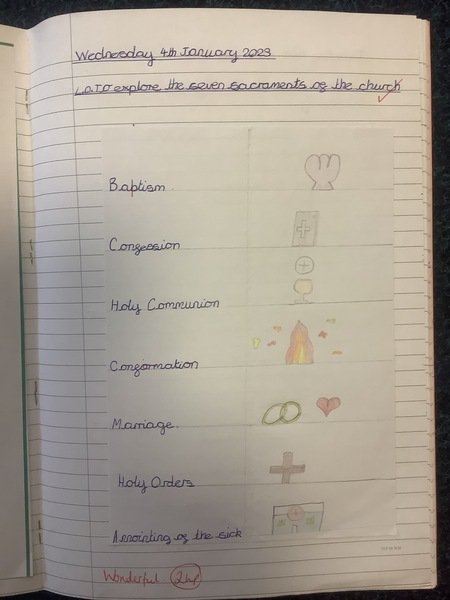 Wednesday 4th January 2023
L.O.TO explore the seven sacraments of the church
Baptism.
Confession
Holy Communion
Conformation
Marriage.
Holy Orders
Anointing of the sick
Wonderful 2HP